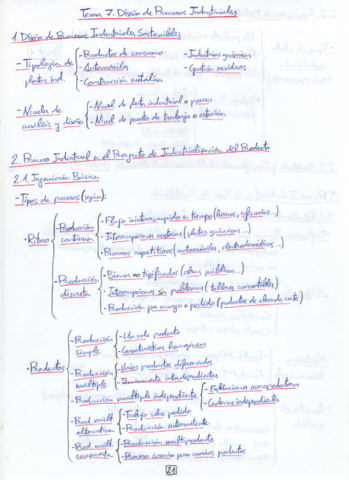 Tema 7. Diseño de Procesos Industriales
1. Diseño de Procesos Industriales Sostenibles
- Tipología de plantas ind.
- Productos de consumo
- Automóviles
- Construcción metálica
- Industrias químicas
- Gestión residuos
- Niveles de análisis y diseño
- Nivel de planta industrial o proceso
- Nivel de puesto de trabajo o estación
2. Proceso Industrial en el Proyecto de Industrialización del Producto
2.1. Ingeniería Básica
- Tipos de procesos (según):
• Ritmo
- Producción continua
- Flujo ininterrumpido en tiempo (
- Interrupciones costosas (plantas químicas...)
- Procesos repetitivos (automóviles, electrodomésticos...)
- Producción discreta
- Bienes no tipificados (
- Interrupciones sin problemas (talleres
- Producción por encargo o pedido (productos de elevado coste)
• Productos
- Producción simple
- Un solo producto
- Características homogéneas
- Producción múltiple
- Varios productos diferenciados
- Técnicamente interdependientes
- Producción múltiple independiente
- Cadenas independientes
- Prod. múlt. alternativa
- Trabajo sobre pedido
- Producción intermitente
- Prod. múlt. compuesta
- Producción multiproducto
- Proceso común para varios productos
21